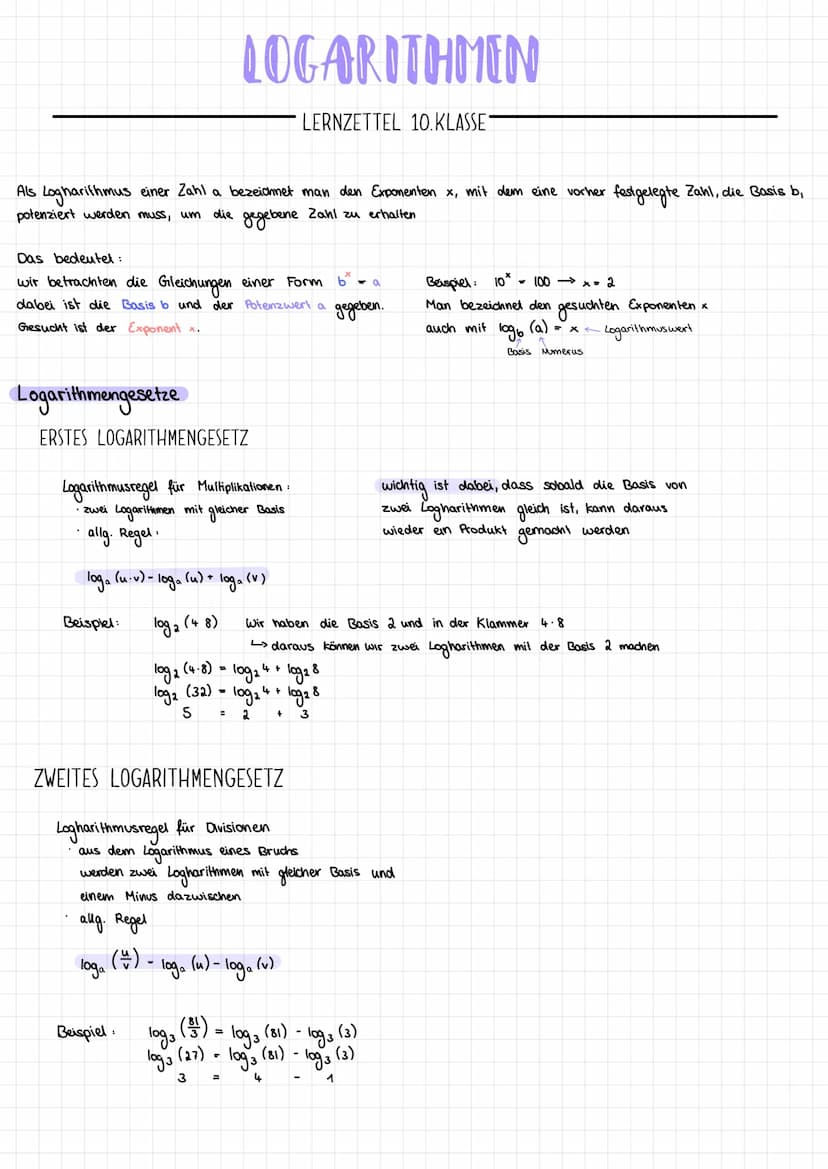 LOGARITHMEN
LERNZETTEL 10.KLASSE
Als Logharithmus einer Zahl a bezeichnet man den Exponenten x, mit dem eine vorher festgelegte Zahl, die Basis b,
potenziert werden muss, um die gegebene Zahl zu erhalten
Das bedeutet:
wir betrachten die Gleichungen einer Form b^x = a
dabei ist die Basis b und der Potenzwert a gegeben.
Gesucht ist der Exponent x.
Beispiel: 10^x = 100 → x = 2
Man bezeichnet den gesuchten Exponenten x
auch mit log_b (a) = x ← Logarithmuswert
Basis Numerus
Logarithmengesetze
ERSTES LOGARITHMENGESETZ
Logarithmusregel für Multiplikationen:
· zwei Logarithmen mit gleicher Basis
· allg. Regel:
wichtig ist dabei, dass sobald die Basis von
zwei Logharithmen gleich ist, kann daraus
wieder ein Produkt gemacht werden
log_a (u·v) = log_a (u) + log_a (v)
Beispiel: log_2 (4·8) Wir haben die Basis 2 und in der Klammer 4·8
↳ daraus können wir zwei Logharithmen mit der Basis 2 machen
log_2 (4·8) = log_2 4 + log_2 8
log_2 (32) = log_2 4 + log_2 8
5 = 2 + 3
ZWEITES LOGARITHMENGESETZ
Logharithmusregel für Divisionen
· aus dem Logarithmus eines Bruchs
werden zwei Logharithmen mit gleicher Basis und
einem Minus dazwischen
· allg. Regel
log_a (u/v) = log_a (u) - log_a (v)
Beispiel: log_3 (81/3) = log_3 (81) - log_3 (3)
log_3 (27) = log_3 (81) - log_3 (3)
3 = 4 - 1